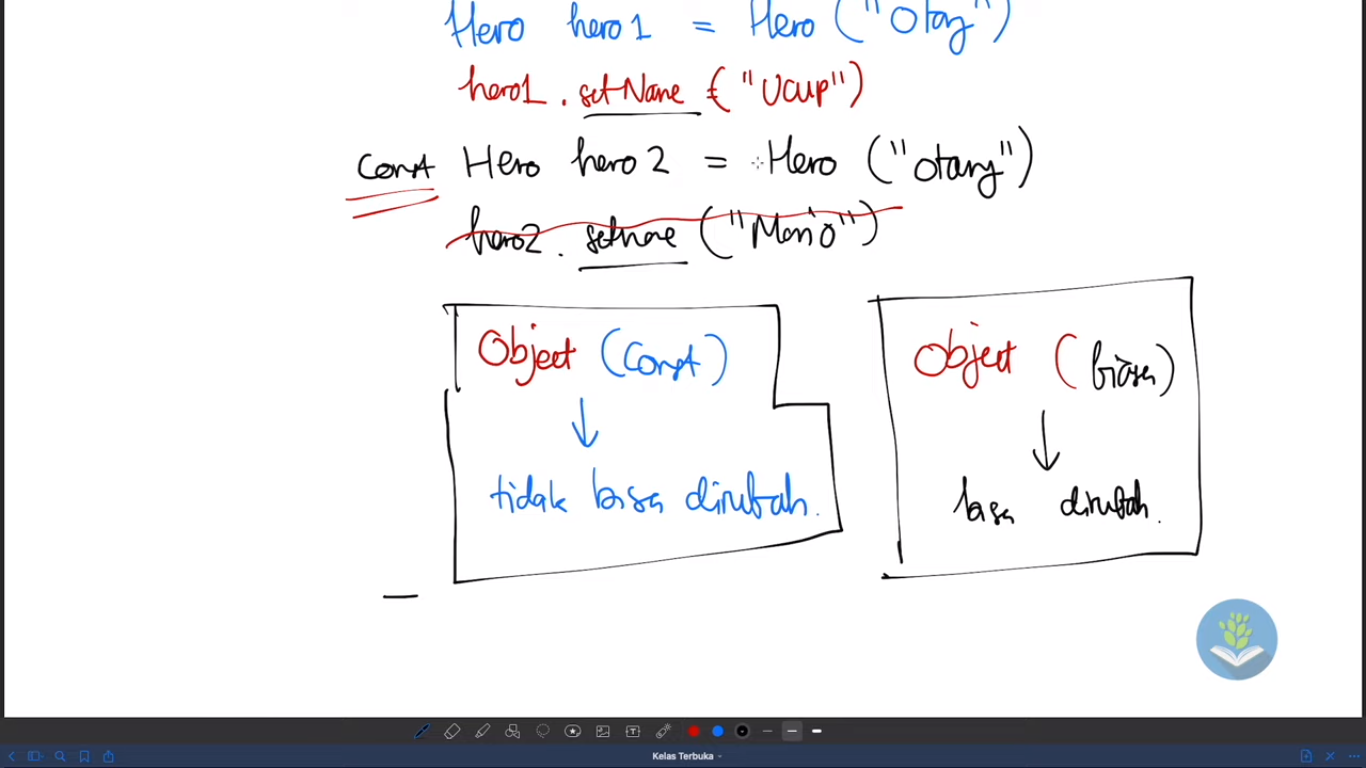 Hero hero1 = Hero ("Otong")
hero1.setName ("Ucup")
Const Hero hero2 = Hero ("otong")
hero2.setname ("Mario")
Object (Const)
tidak bisa dirubah.
Object (biasa)
bisa dirubah.
Kelas Terbuka